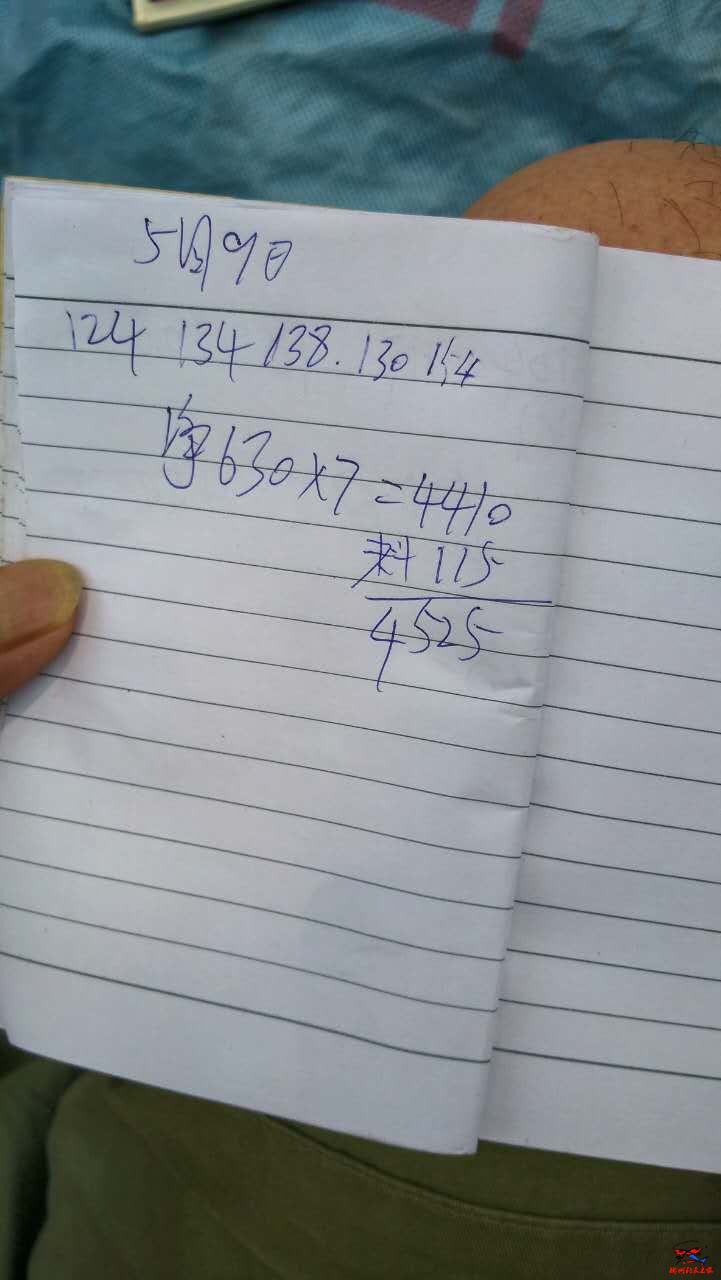 5月9日
124 134 138.130 154
630×7=4410
料 115
4525